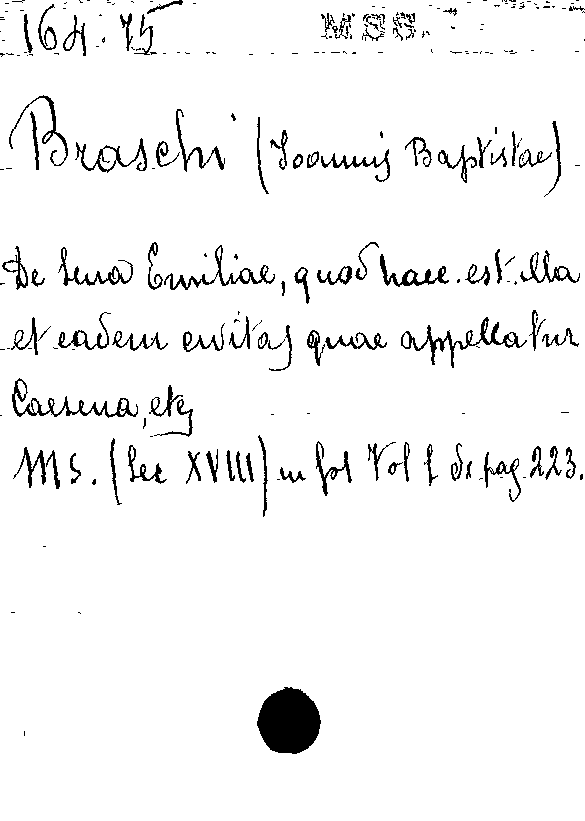 164.75 MSS.
Braschi (Joannis Baptistae)
De Sena Emiliae, quod haec est illa
et eadem civitas quae appellatur
Caesena, etc
MS. (Sec XVIII) in fol Vol 1 di pag 223.